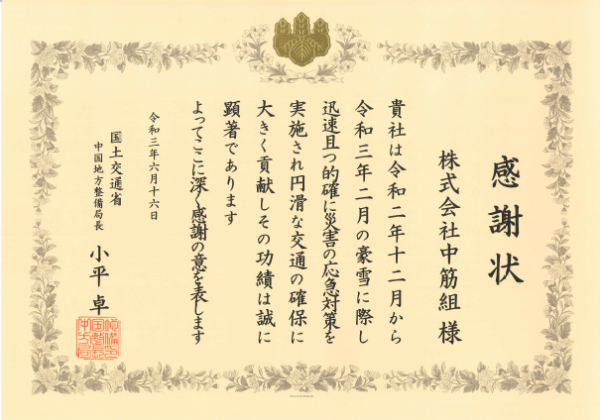 感謝状
株式会社中筋組 様
貴社は令和二年十二月から
令和三年二月の豪雪に際し
迅速且つ的確に災害の応急対策を
実施され円滑な交通の確保に
大きく貢献しその功績は誠に
顕著であります
よってここに深く感謝の意を表します
令和三年六月十六日
国土交通省
中国地方整備局長
小平 卓